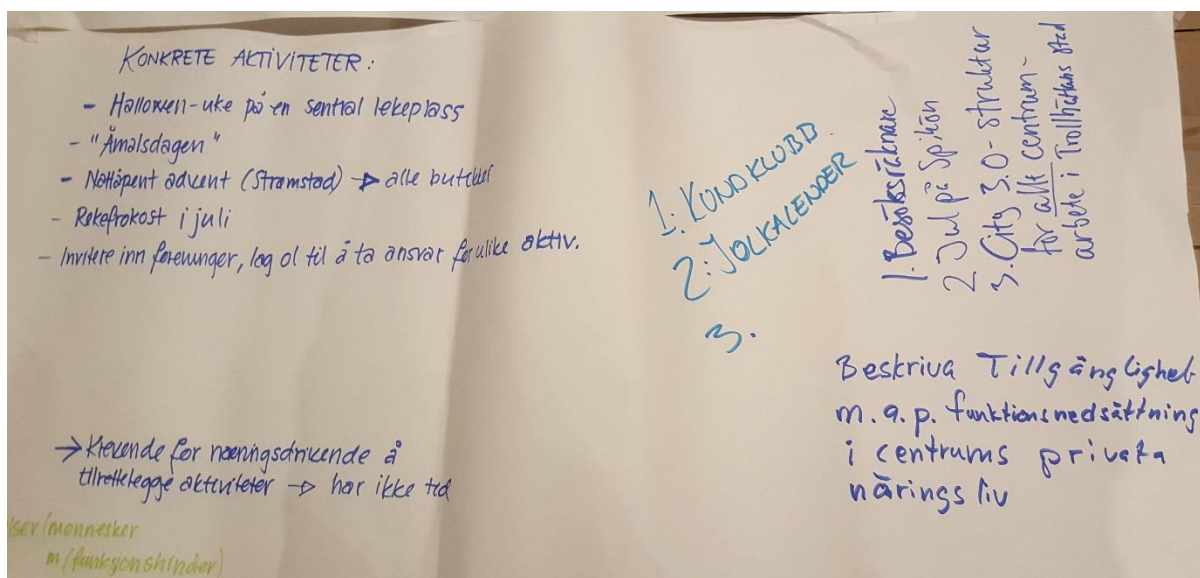 KONKRETE AKTIVITETER:
- Hallowen-uke på en sentral lekeplass
- "Åmålsdagen"
- Nattåpent advent (Strømstad) → alle butikker
- Rekefrokost i juli
- Invitere inn foreninger, lag ol til å ta ansvar for ulike aktiv.
→ Krevende for næringsdrivende å
tilrettelegge aktiviteter → har ikke tid
mennesker
m/funksjonshinder)
1. KUNDKLUBB
2: JULKALENDER
3.
1. Besöksräknare
2. Jul på Spikön
3. City 3.0-struktur
för allt centrum-
arbete i Trollhättans stad
Beskriva Tillgänglighet
m.a.p. funktionsnedsättning
i centrums privata
näringsliv